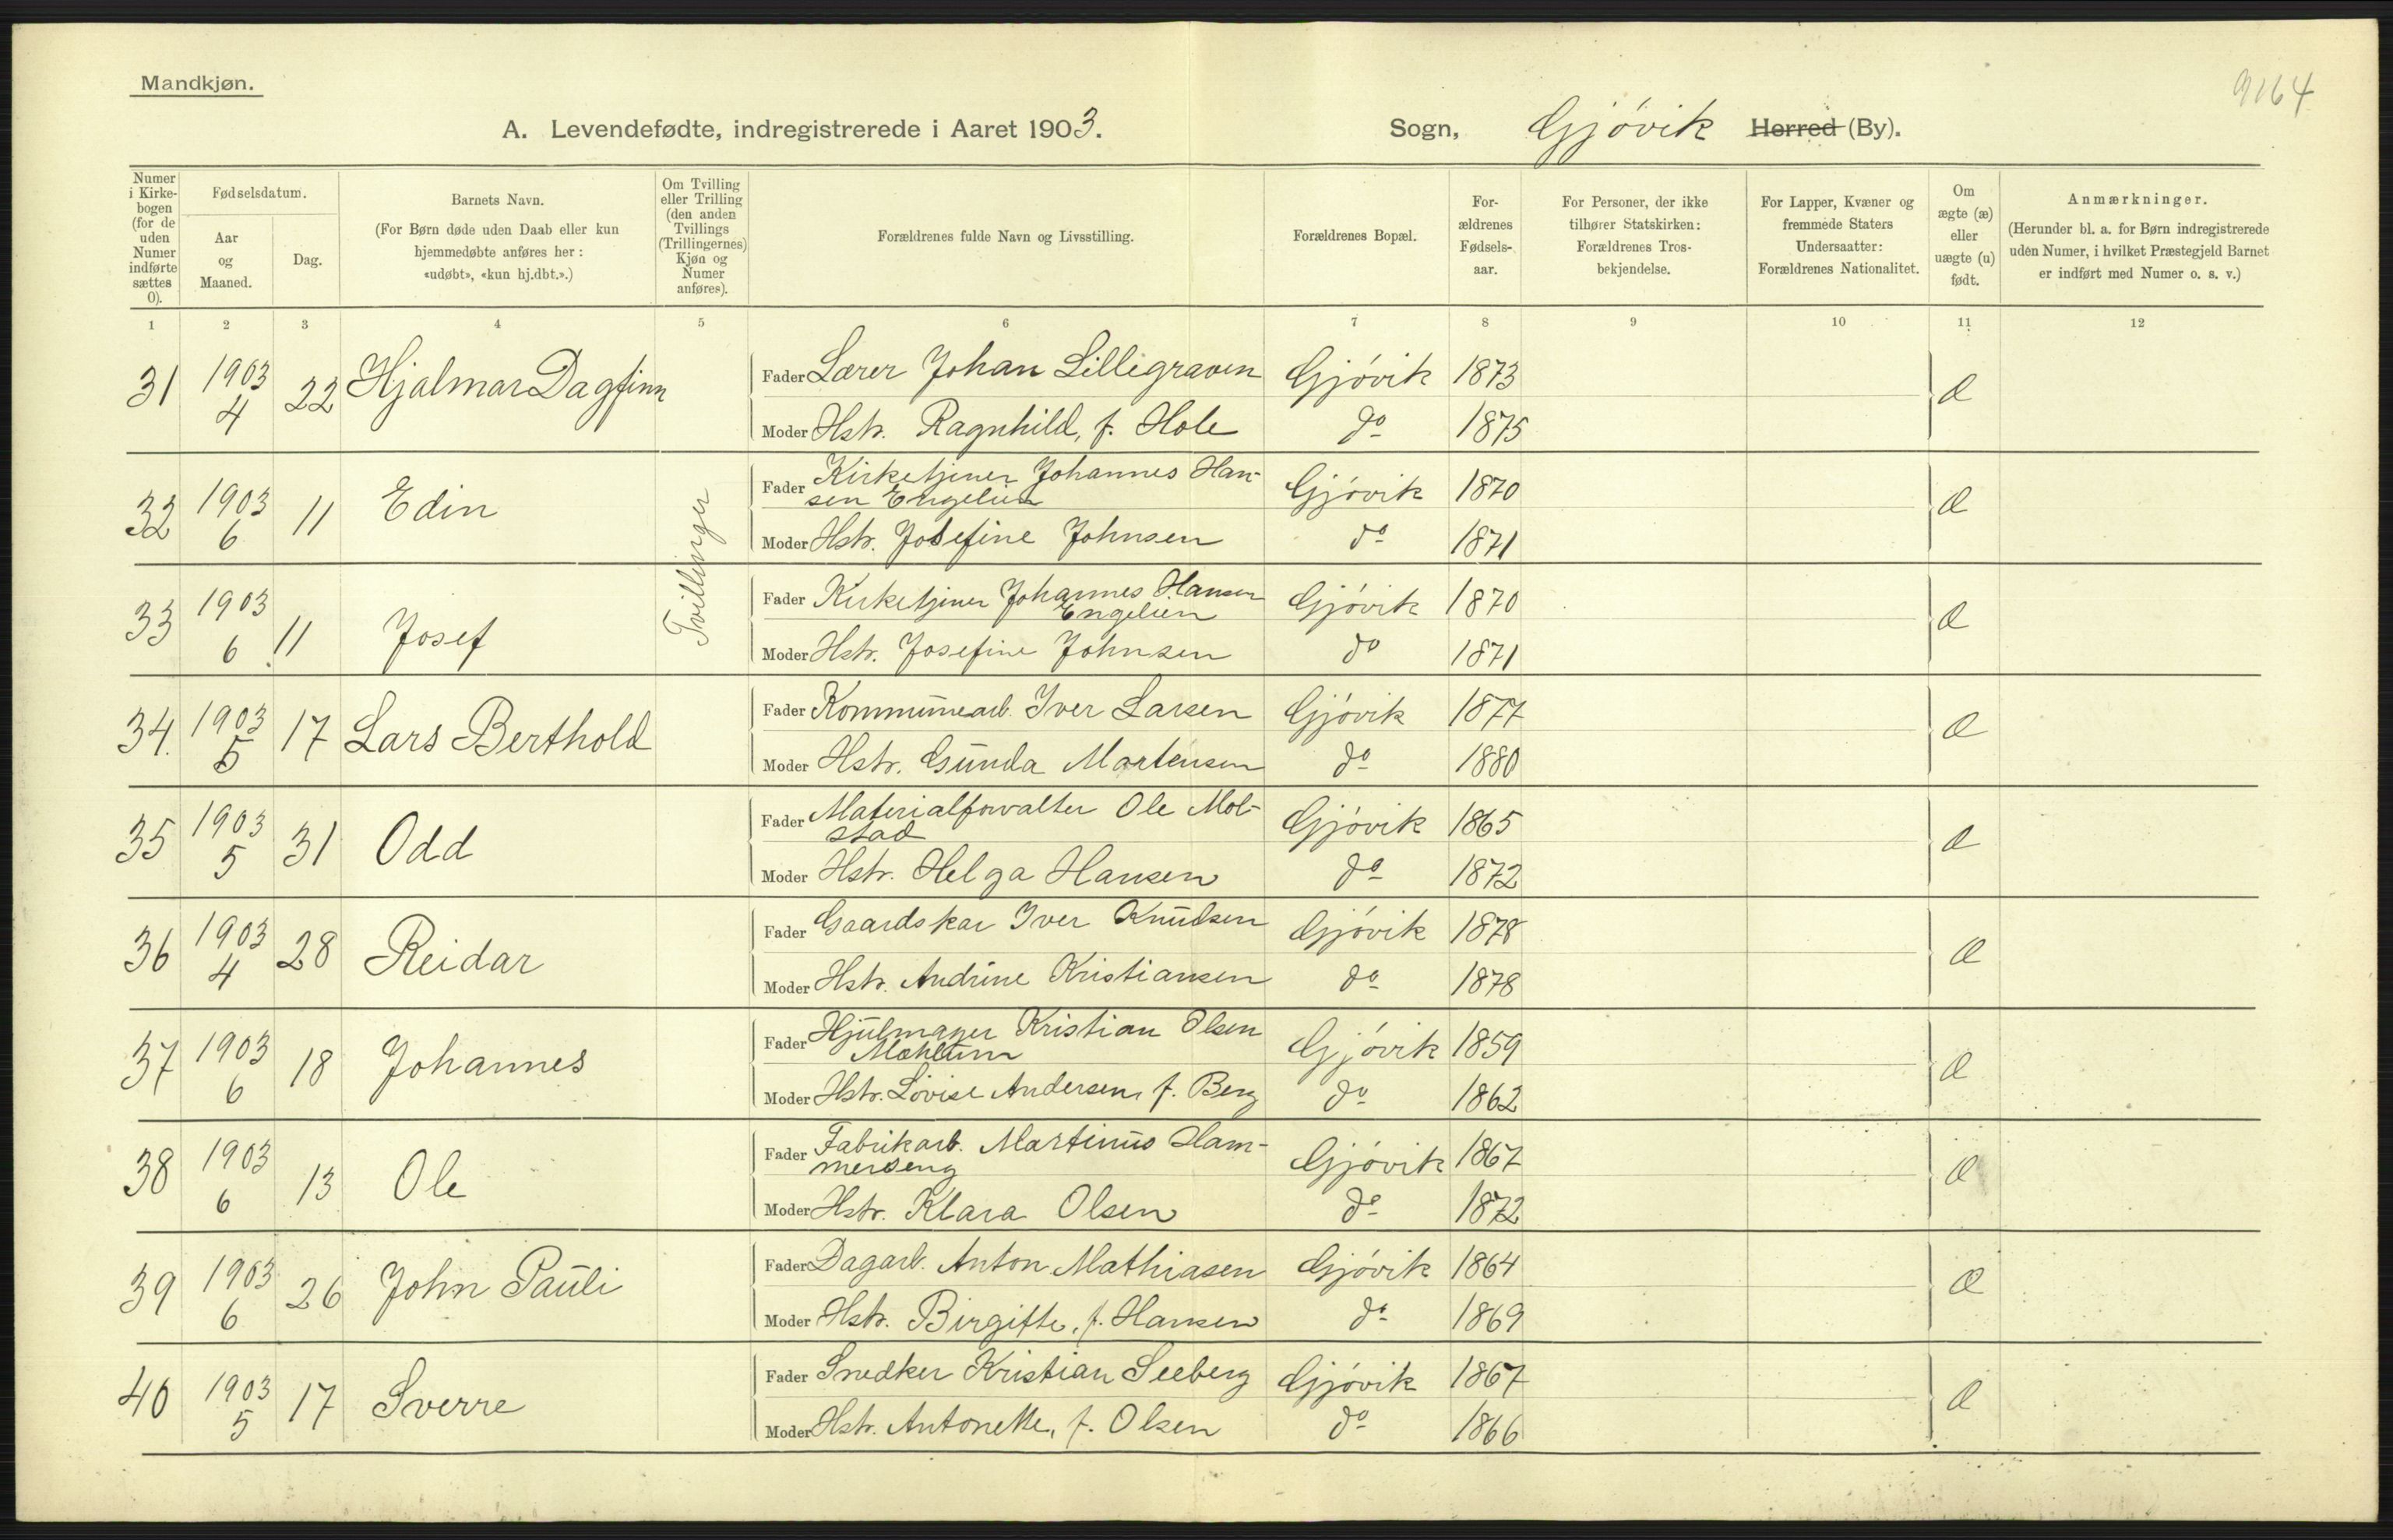 Mandkjøn.
9164
A. Levendefødte, indregistrerede i Aaret 1903.
Sogn, Gjövik Herred (By).
Numer i Kirkebogen (for de uden Numer indførte sættes 0).
Fødselsdatum.
Aar og Maaned.
Dag.
Barnets Navn.
(For Børn døde uden Daab eller kun hjemmedøbte anføres her: «udøbt», «kun hj.dbt.».)
Om Tvilling eller Trilling (den anden Tvillings (Trillingernes) Kjøn og Numer anføres).
Forældrenes fulde Navn og Livsstilling.
Forældrenes Bopæl.
Forældrenes Fødselsaar.
For Personer, der ikke tilhører Statskirken: Forældrenes Trosbekjendelse.
For Lapper, Kvæner og fremmede Staters Undersaatter: Forældrenes Nationalitet.
Om ægte (æ) eller uægte (u) født.
Anmærkninger.
(Herunder bl. a. for Børn indregistrerede uden Numer, i hvilket Præstegjeld Barnet er indført med Numer o. s. v.)
1 2 3 4 5 6 7 8 9 10 11 12
31 1903 4 22 Hjalmar Dagfinn
Fader Lærer Johan Lilligraven Gjövik 1873 æ
Moder Hstr. Ragnhild, f. Hole do 1875
Tvillinger
32 1903 6 11 Edin
Fader Kirketjener Johannes Han-
sen Engelien Gjövik 1870 æ
Moder Hstr. Josefine Johnsen do 1871
33 1903 6 11 Josef
Fader Kirketjener Johannes Hansen
Engelien Gjövik 1870 æ
Moder Hstr. Josefine Johnsen do 1871
34. 1903 5 17 Lars Berthold
Fader Kommunearb. Iver Larsen Gjövik 1877 æ
Moder Hstr. Gunda Martensen do 1880
35 1903 5 31 Odd
Fader Materialforvalter Ole Mol-
stad Gjövik 1865 æ
Moder Hstr. Helga Hansen do 1872
36 1903 4 28 Reidar
Fader Gaardskar Iver Knudsen Gjövik 1878 æ
Moder Hstr. Andrine Kristiansen do 1878
37 1903 6 18 Johannes
Fader Hjulmager Kristian Olsen
Mæhlum Gjövik 1859 æ
Moder Hstr. Lovise Andersen, f. Berg do 1862
38 1903 6 13 Ole
Fader Fabrikarb. Martinus Ham-
merseng Gjövik 1867 æ
Moder Hstr. Klara Olsen do 1872
39 1903 6 26 John Pauli
Fader Dagarb. Anton Mathiasen Gjövik 1864 æ
Moder Hstr. Birgitte, f. Hansen do 1869
40 1903 5 17 Sverre
Fader Snedker Kristian Seeberg Gjövik 1867 æ
Moder Hstr. Antonette, f. Olsen do 1866